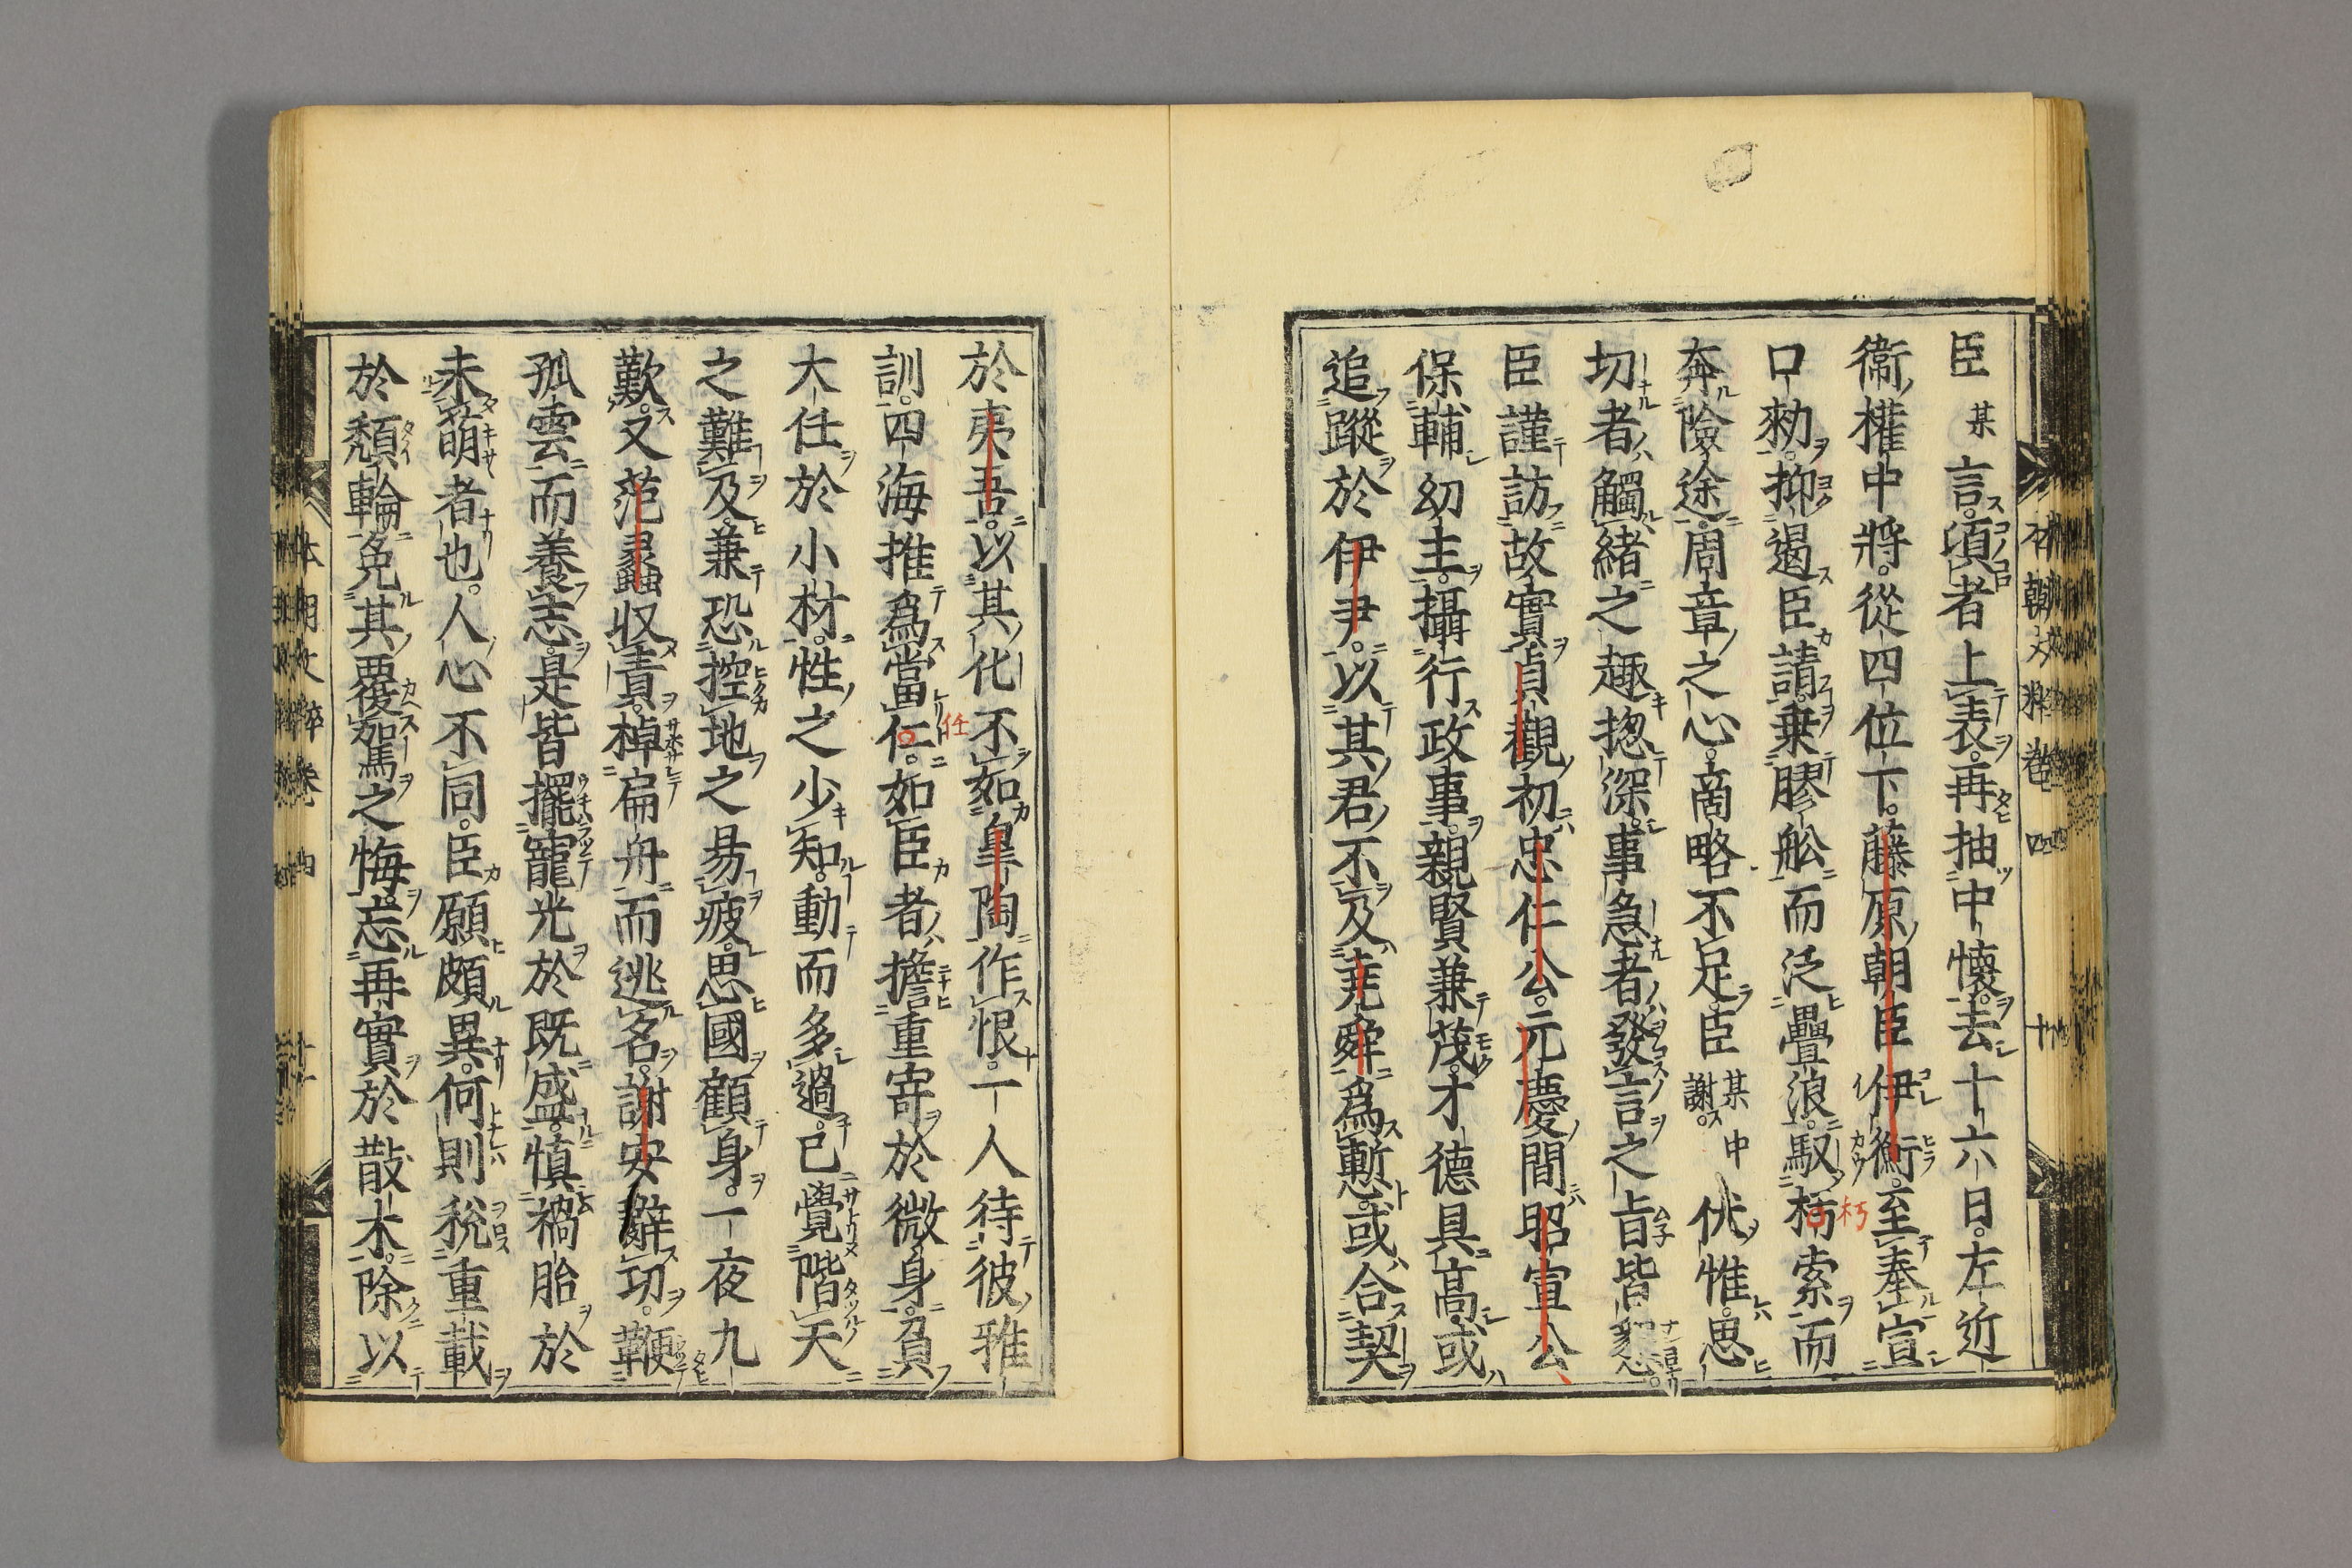 臣某言。頃者上表。再抽中懷。去十六日。左近
衞權中將。從四位下。藤原朝臣伊衡。至奉宣
口勅。抑遏臣請。乗膠舩而泛疊浪。馭枴索而
奔險途。周章之心。啇略不足。臣某中謝。伏惟。思
切者。觸緒之趣揔深。事急者。發言之旨皆
臣謹訪故實。貞觀初忠仁公。元慶間昭宣公、
保輔幼主。攝行政事。親賢兼茂。才德具高。或
追蹤於伊尹。以其君不及堯舜爲慙。或合契
於夷吾。以其化不如皐陶作恨。一人待彼雅
訓。四海推爲當仁。如臣者。擔重寄於微身。負
大任於小材。性之少知。動而多過。已覺階天
之難及。兼恐控地之易疲。思國顧身。一夜九
歎。又范蠡収責。棹扁舟而逃名。謝安辭切。鞭
孤雲而養志。是皆擺寵光於既盛。慎禍胎於
未萌者也。人心不同。臣願頗異。何則稅重載
於頽輪。免其覆駕之悔。忘再實於散木。除以
本朝文粹卷四
十
任
朽